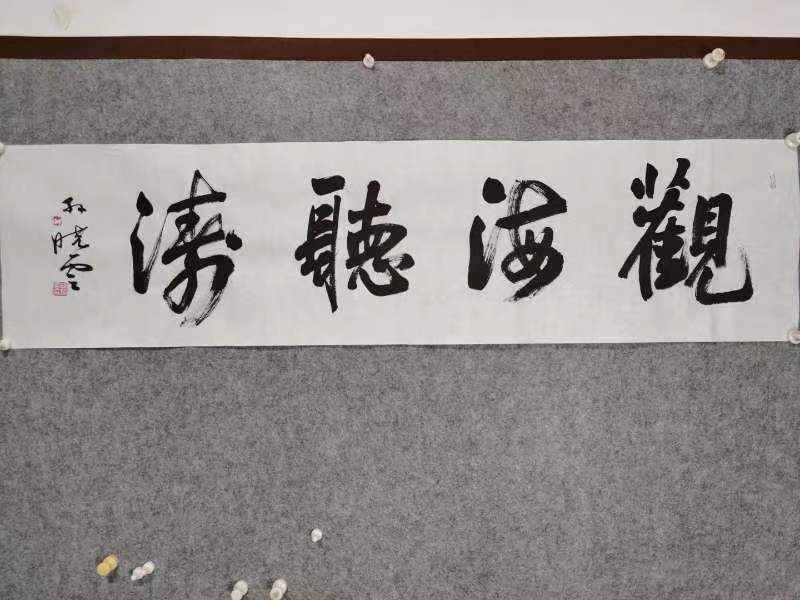 觀海聽濤
孙晓雲